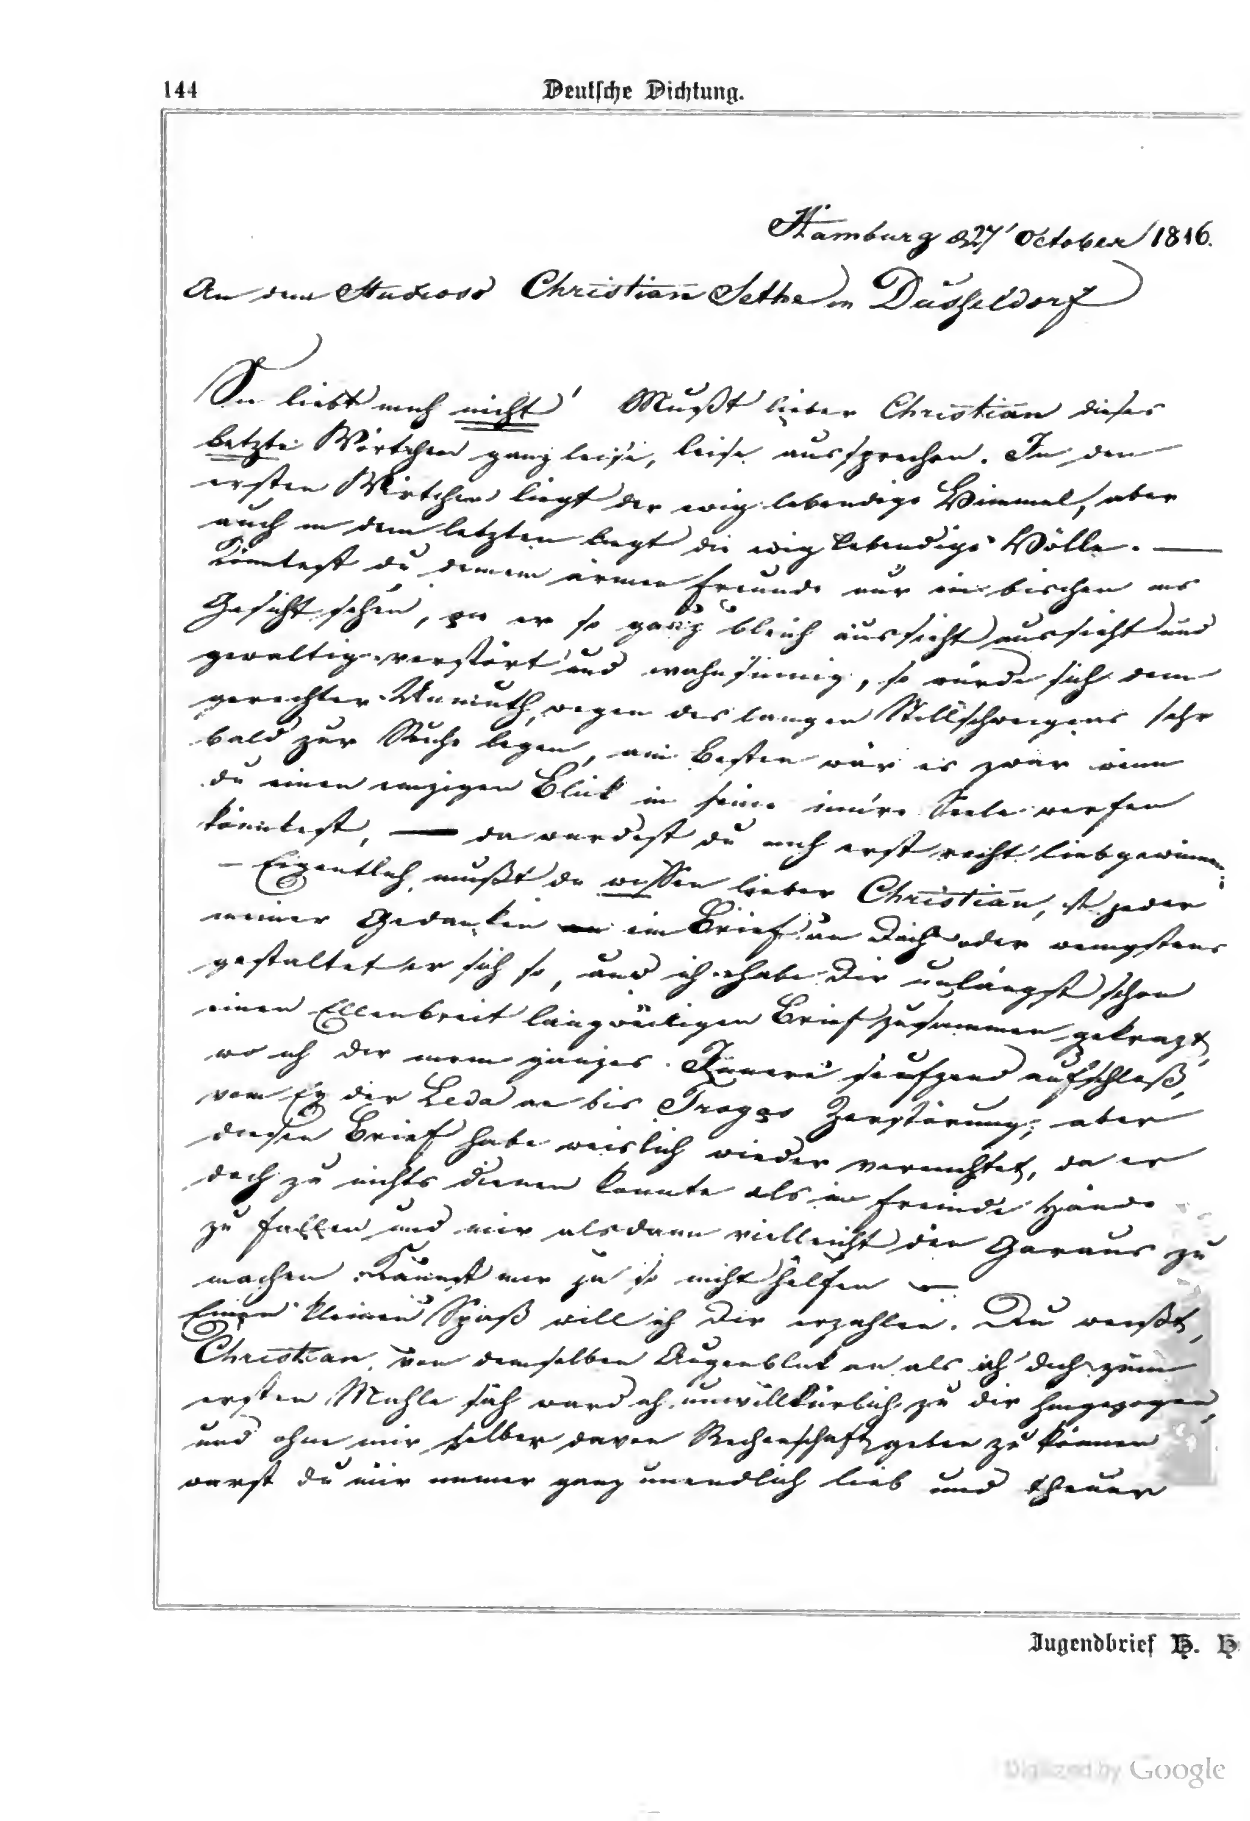 144
Deutsche Dichtung.
Hamburg d 27 October 1816.
An den Studioso Christian Sethe in Düsseldorf
Sie liebt mich nicht! Mußt lieber Christian dieses
letzte Wörtchen ganz leise, leise aussprechen. In den
ersten Wörtchen liegt der ewig lebendige Himmel, aber
auch in dem letzten liegt die ewig lebendige Hölle. —
Könntest du deinem armen Freunde nur ein bischen ins
Gesicht sehen, wie er so ganz bleich aussieht und
gewaltig verstört und wahnsinnig, so würde sich dein
gerechter Unmuth wegen des langen Stillschweigens sehr
bald zur Ruhe legen, am besten wär es zwar wenn
du einen einzigen Blick in seine innre Seele werfen
könntest, — da würdest du mich erst recht liebgewinnen.
— Eigentlich mußt du wissen lieber Christian, ist jeder
meiner Gedanken ein Brief an Dich oder wenigstens
gestaltet er sich so, und ich habe Dir unlängst schon
einen Ellenbreit langweiligen Brief zusammen gekrazt,
wo ich dir mein ganzes Innere seufzend aufschloß,
vom Ey der Leda an bis Trojas Zerstörung; aber
diesen Brief habe weislich wieder vernichtet, da er
doch zu nichts dienen konnte als in fremde Hände
zu fallen und mir alsdann vielleicht den Garaus zu
machen. Kannst mir ja so nicht helfen —
Einen kleinen Spaß will ich Dir erzählen. Du weißt,
Christian, von demselben Augenblick an als ich dich zum
ersten Mahle sah ward ich unwillkürlich zu dir hingezogen,
und ohne mir selber davon Rechenschaft geben zu können
warst du mir immer ganz unendlich lieb und theuer
Jugendbrief H. H
Digitized by Google